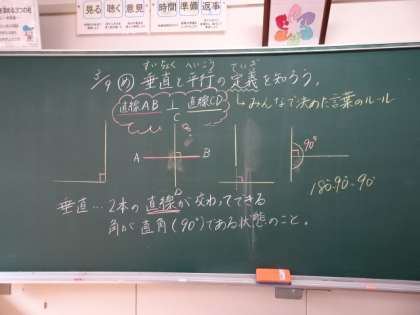 見る 聴く 意見 時間 準備 返事
すいちょく へいこう ていぎ
3/9 め 垂直と平行の定義を知ろう。
直線AB ⊥ 直線CD
↳みんなで決めた言葉のルール
C
A B
D
90°
180-90=90
垂直…2本の直線が交わってできる
角が直角(90°)である状態のこと。